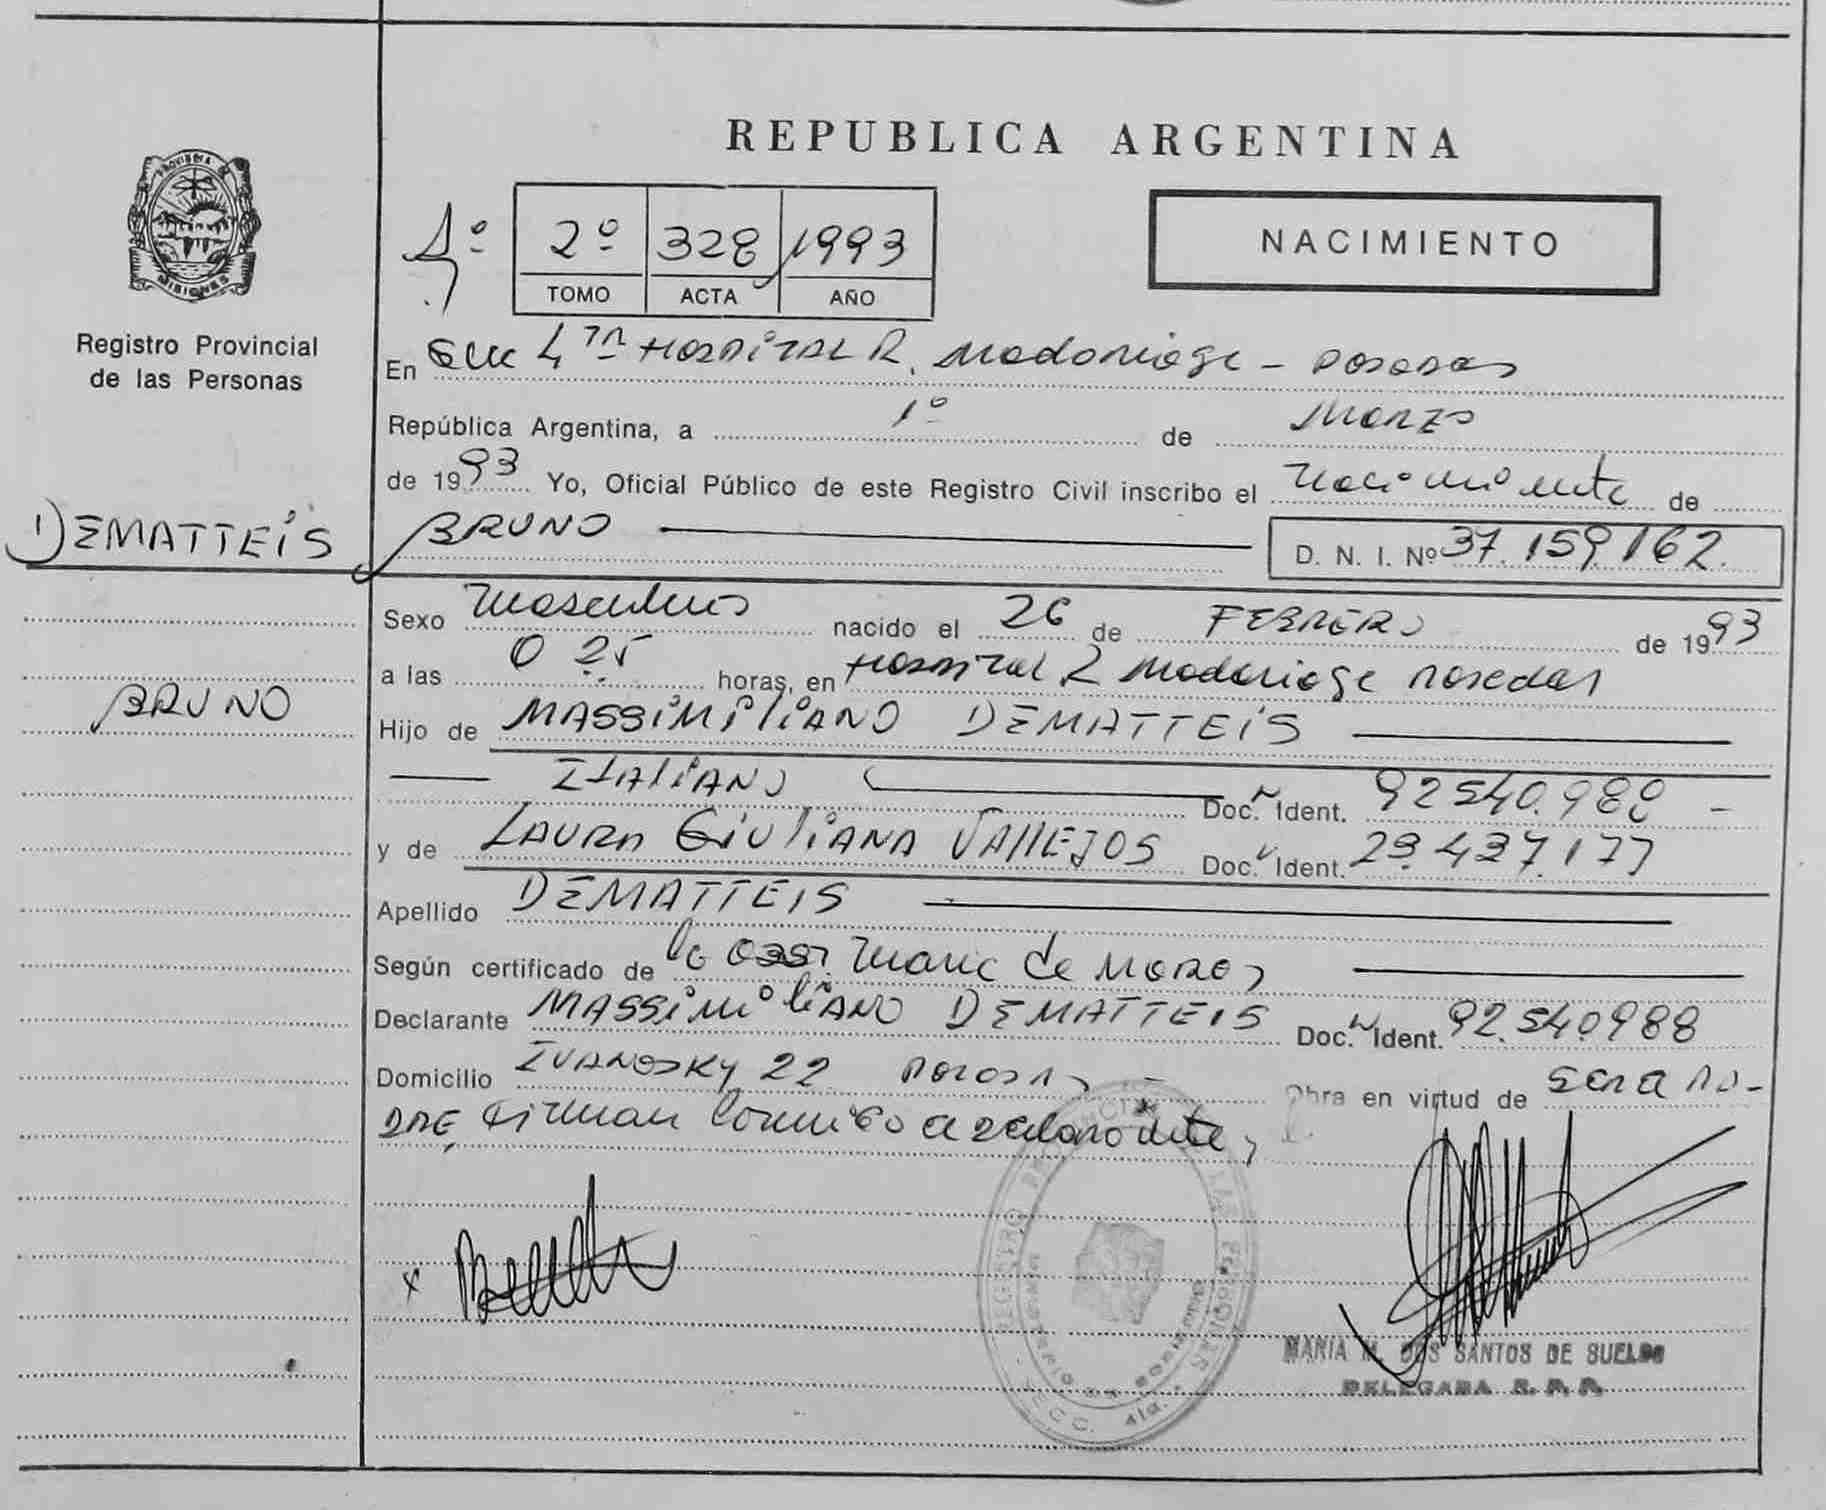 REPUBLICA ARGENTINA
PROVINCIA DE MISIONES
Registro Provincial
de las Personas
1º
2º 328 1993
TOMO ACTA AÑO
NACIMIENTO
En 4ta HOSPITAL R. Madariaga - POSADAS
República Argentina, a 1º de MARZO
de 1993 Yo, Oficial Público de este Registro Civil inscribo el Nacimiento de
DEMATTEiS BRUNO D. N. I. Nº 37.159.162.
Sexo Masculino nacido el 26 de FEBRERO de 1993
BRUNO
a las 0 25 horas, en Hospital R Madariaga Posadas
Hijo de MASSiMiliANO DEMATTEiS
ITAliANO Doc. Ident. 92540.988 -
y de LAURA GiUliANA VAllEJOS Doc. Ident. 23.437.177
Apellido DEMATTEiS
Según certificado de la Obst Maria de
Declarante MASSiMiliANO DEMATTEiS Doc. Ident. 92.540.988
Domicilio 22 POSADAS - Obra en virtud de SER el PA-
DRE, Firman conmigo
REGISTRO PROVINCIAL DE LAS PERSONAS
MARIA M. DOS SANTOS DE SUELDO
DELEGADA R. P. P.